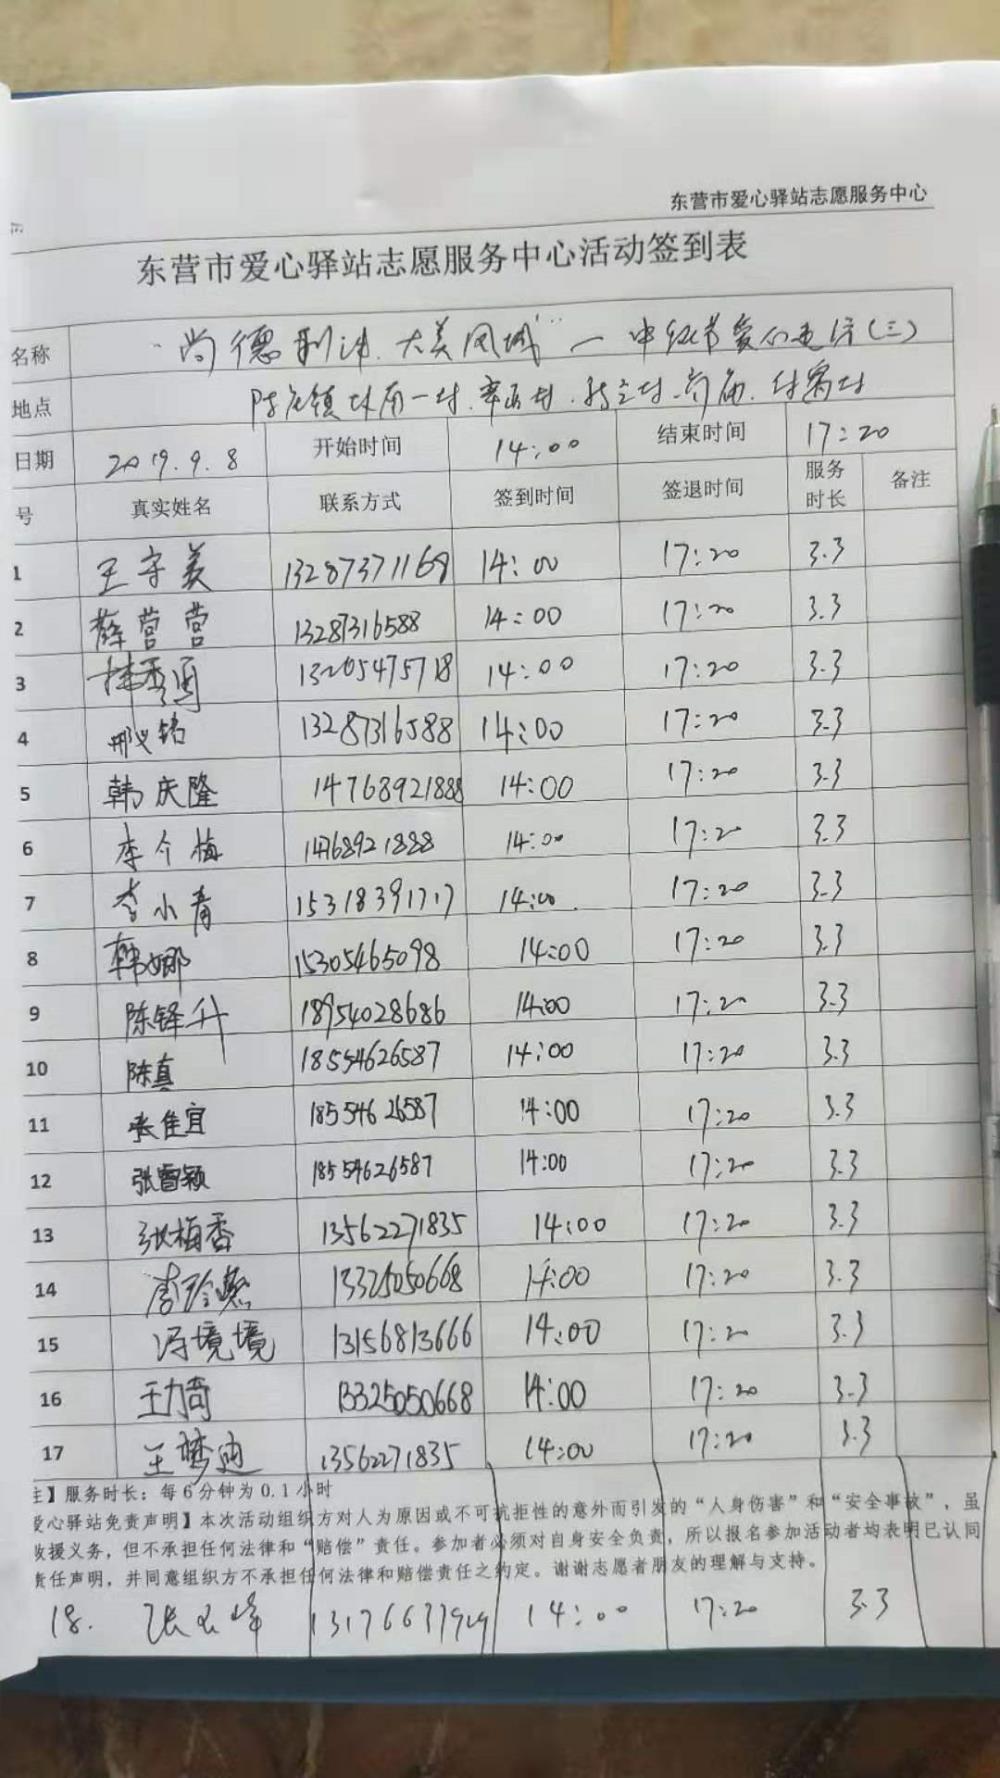 东营市爱心驿站志愿服务中心
东营市爱心驿站志愿服务中心活动签到表
名称 “尚德利津.大美凤城”一中秋节爱心走访(三)
地点 陈庄镇
日期 2019.9.8 开始时间 14:00 结束时间 17:20
号 真实姓名 联系方式 签到时间 签退时间 服务时长 备注
1 王守美 13287371168 14:00 17:20 3.3
2 薛营营 13287316588 14:00 17:20 3.3
3 13205475718 14:00 17:20 3.3
4 邢义铭 13287316588 14:00 17:20 3.3
5 韩庆隆 14768921888 14:00 17:20 3.3
6 李个梅 14768921888 14:00 17:20 3.3
7 李小青 15318391717 14:00 17:20 3.3
8 韩娜 15305465098 14:00 17:20 3.3
9 陈铎升 18954028686 14:00 17:20 3.3
10 陈真 18554626587 14:00 17:20 3.3
11 张佳宜 18554626587 14:00 17:20 3.3
12 张雪颖 18554626587 14:00 17:20 3.3
13 张梅香 13562271835 14:00 17:20 3.3
14 李玲燕 13325050668 14:00 17:20 3.3
15 冯境境 13156813666 14:00 17:20 3.3
16 王力奇 13325050668 14:00 17:20 3.3
17 王梦迪 13562271835 14:00 17:20 3.3
注】服务时长：每6分钟为0.1小时
爱心驿站免责声明】本次活动组织方对人为原因或不可抗拒性的意外而引发的“人身伤害”和“安全事故”，虽
救援义务，但不承担任何法律和“赔偿”责任。参加者必须对自身安全负责，所以报名参加活动者均表明已认同
责任声明，并同意组织方不承担任何法律和赔偿责任之约定。谢谢志愿者朋友的理解与支持。
18. 张玉峰 14:00 17:20 3.3